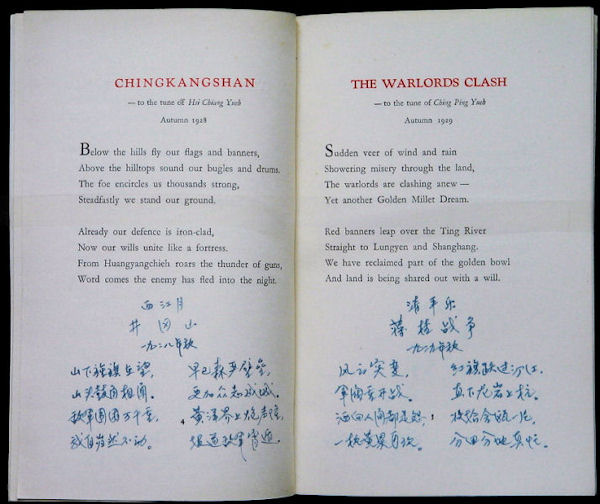 CHINGKANGSHAN
— to the tune of Hsi Chiang Yueh
Autumn 1928
Below the hills fly our flags and banners,
Above the hilltops sound our bugles and drums.
The foe encircles us thousands strong,
Steadfastly we stand our ground.
Already our defence is iron-clad,
Now our wills unite like a fortress.
From Huangyangchieh roars the thunder of guns,
Word comes the enemy has fled into the night.
西江月
井冈山
一九二八年秋
山下旌旗在望,
山头鼓角相闻。
敌军围困万千重,
我自岿然不动。
早已森严壁垒,
更加众志成城。
黄洋界上炮声隆,
报道敌军宵遁。
4
THE WARLORDS CLASH
— to the tune of Ching Ping Yueh
Autumn 1929
Sudden veer of wind and rain
Showering misery through the land,
The warlords are clashing anew —
Yet another Golden Millet Dream.
Red banners leap over the Ting River
Straight to Lungyen and Shanghang.
We have reclaimed part of the golden bowl
And land is being shared out with a will.
清平乐
蒋桂战争
一九二九年秋
风云突变,
军阀重开战。
洒向人间都是怨,
一枕黄粱再现。
红旗跃过汀江,
直下龙岩上杭。
收拾金瓯一片,
分田分地真忙。